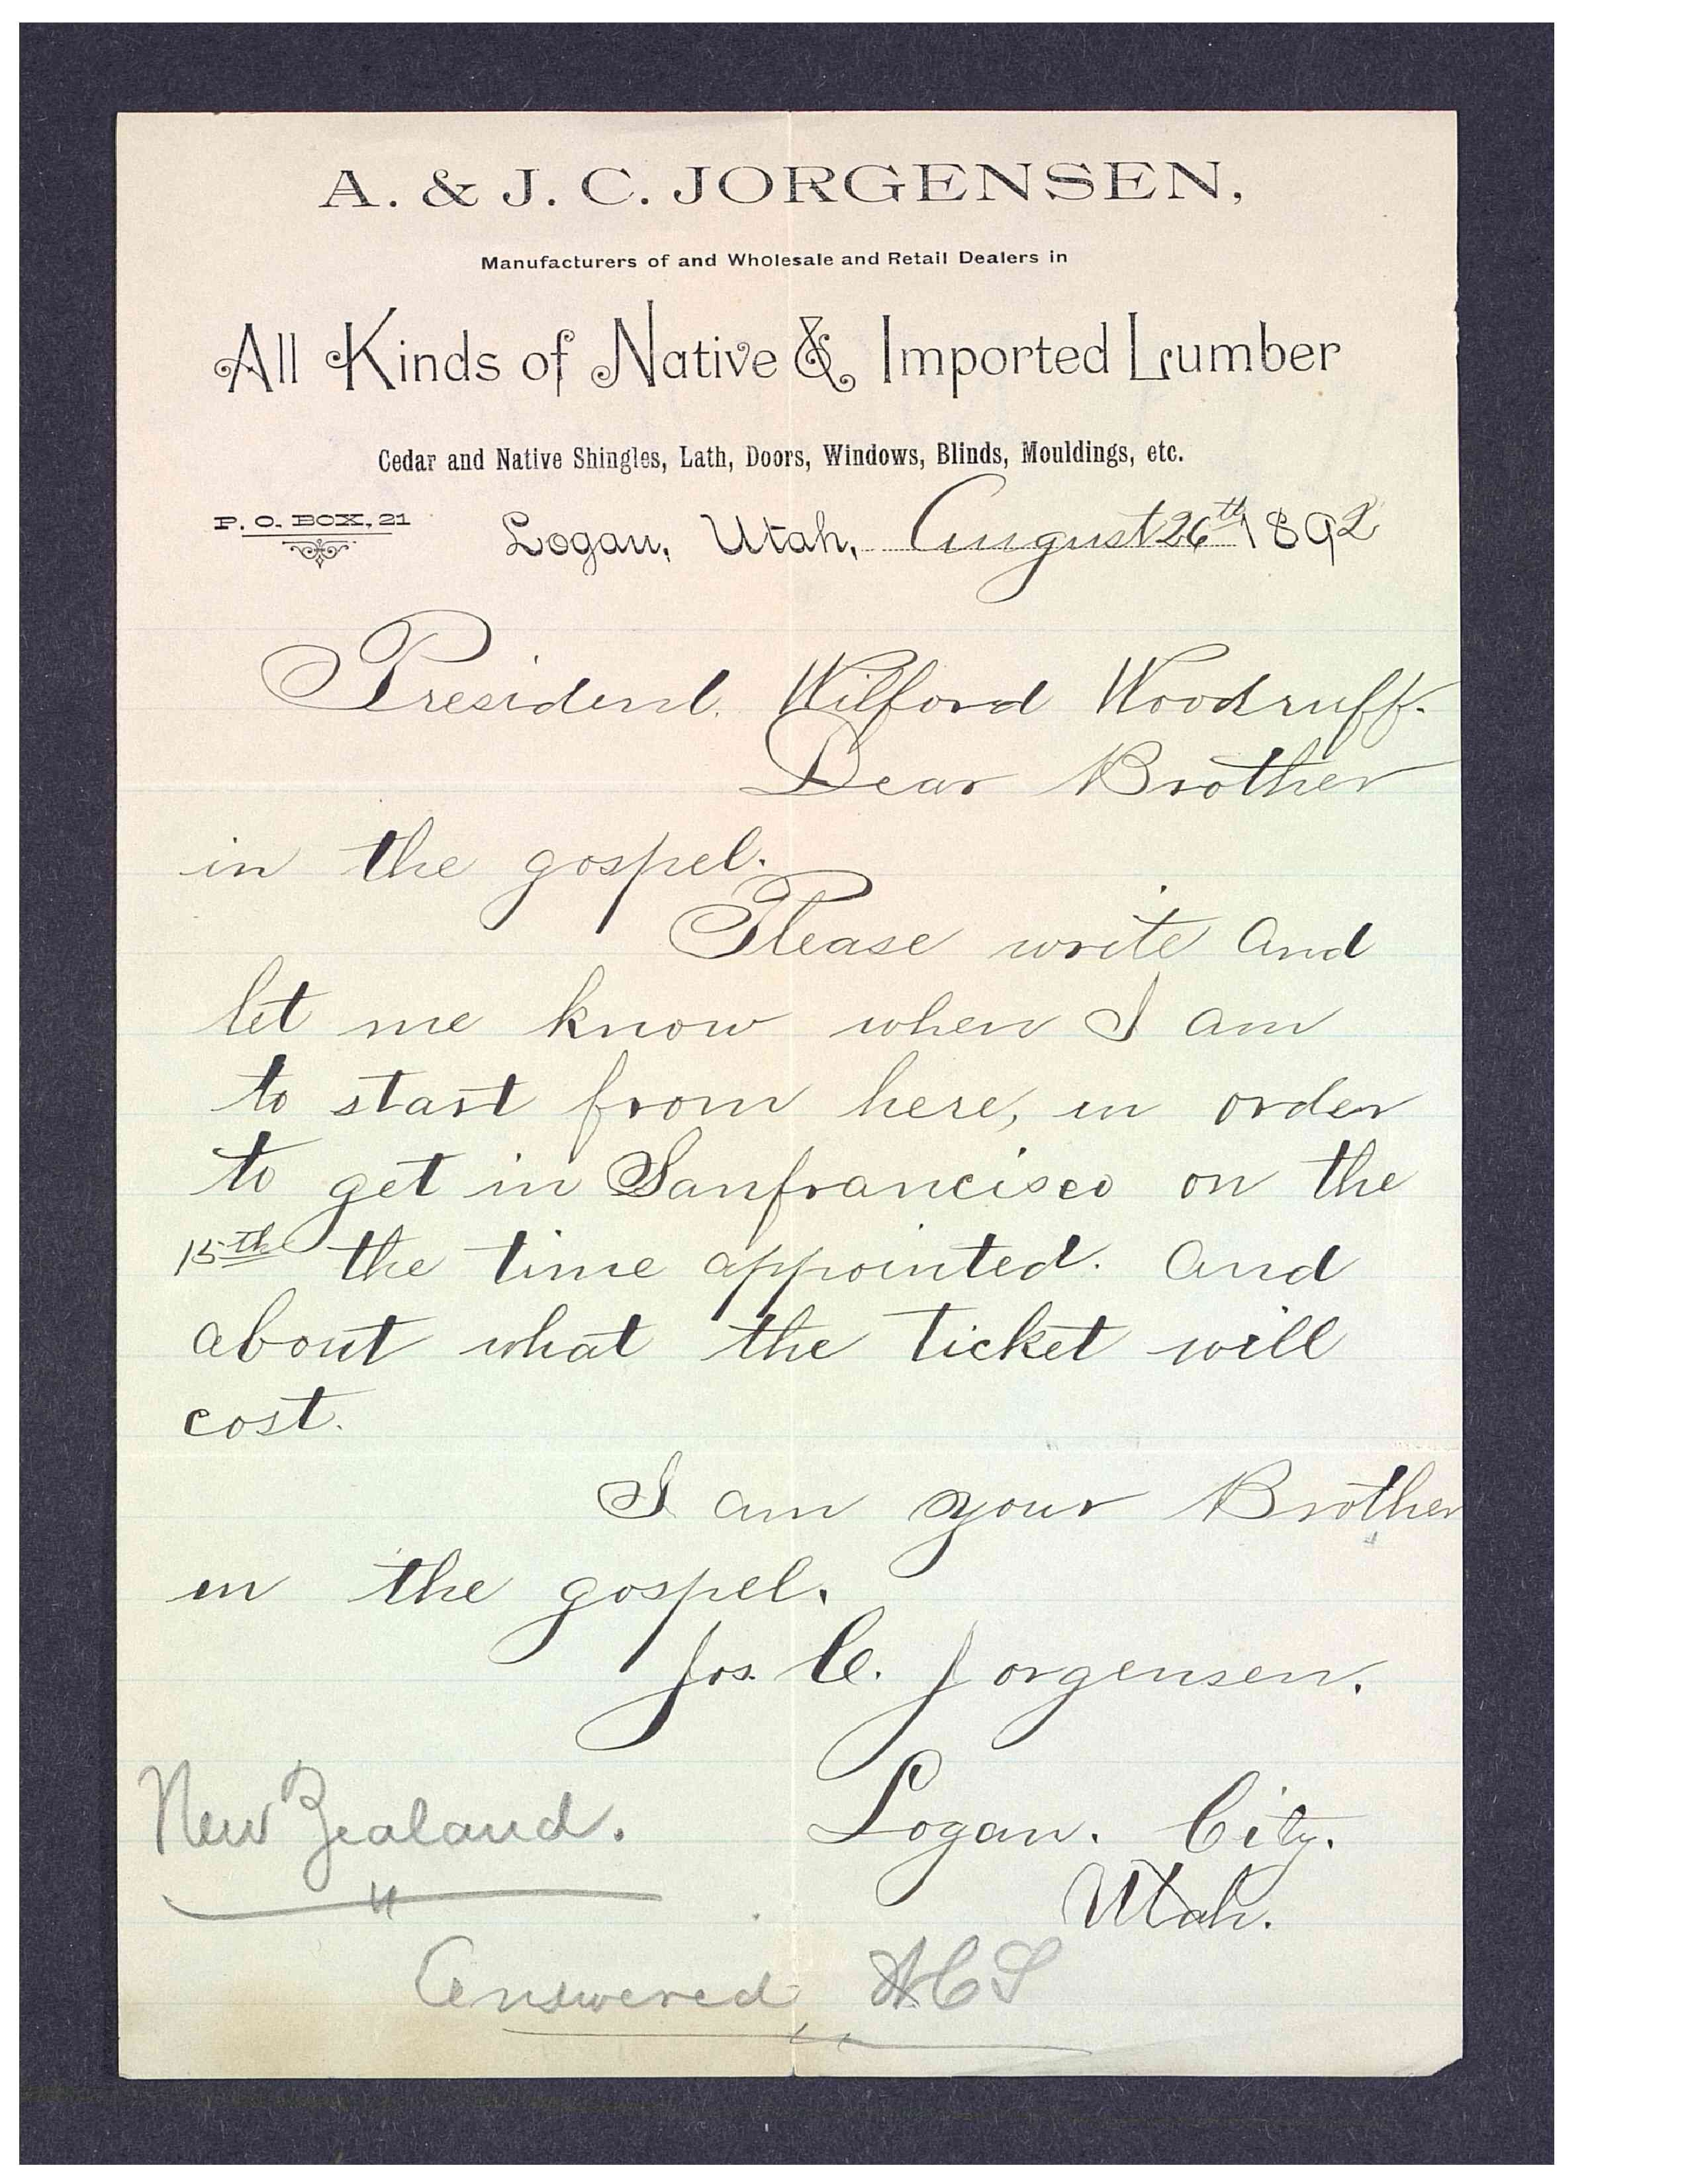 A. & J. C. JORGENSEN,
Manufacturers of and Wholesale and Retail Dealers in
All Kinds of Native & Imported Lumber
Cedar and Native Shingles, Lath, Doors, Windows, Blinds, Mouldings, etc.
P. O. BOX, 21
Logan, Utah, August 26th 1892
President. Wilford Woodruff.
Dear Brother
in the gospel.
Please write and
let me know when I am
to start from here, in order
to get in Sanfrancisco on the
15th the time appointed. And
about what the Ticket will
cost.
I am your Brother
in the gospel.
Jos. C. Jorgensen.
Logan. City.
Utah.
New Zealand.
Answered